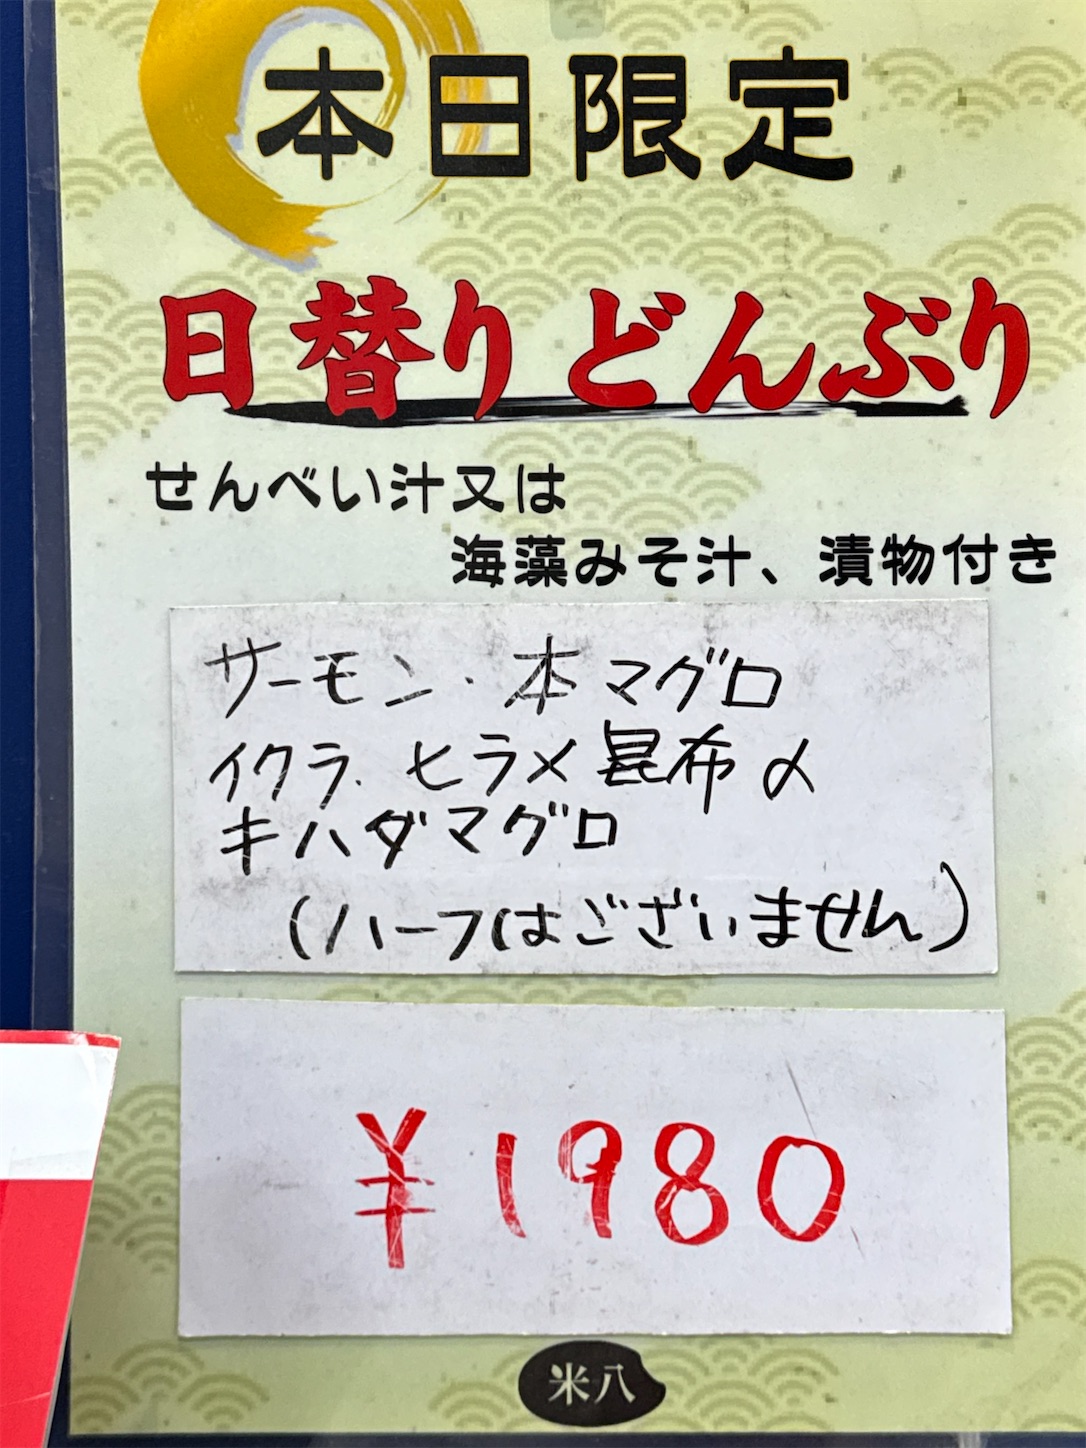 本日限定
日替りどんぶり
せんべい汁又は
海藻みそ汁、漬物付き
サーモン・本マグロ
イクラ、ヒラメ昆布〆
キハダマグロ
(ハーフはございません)
¥1980
米八